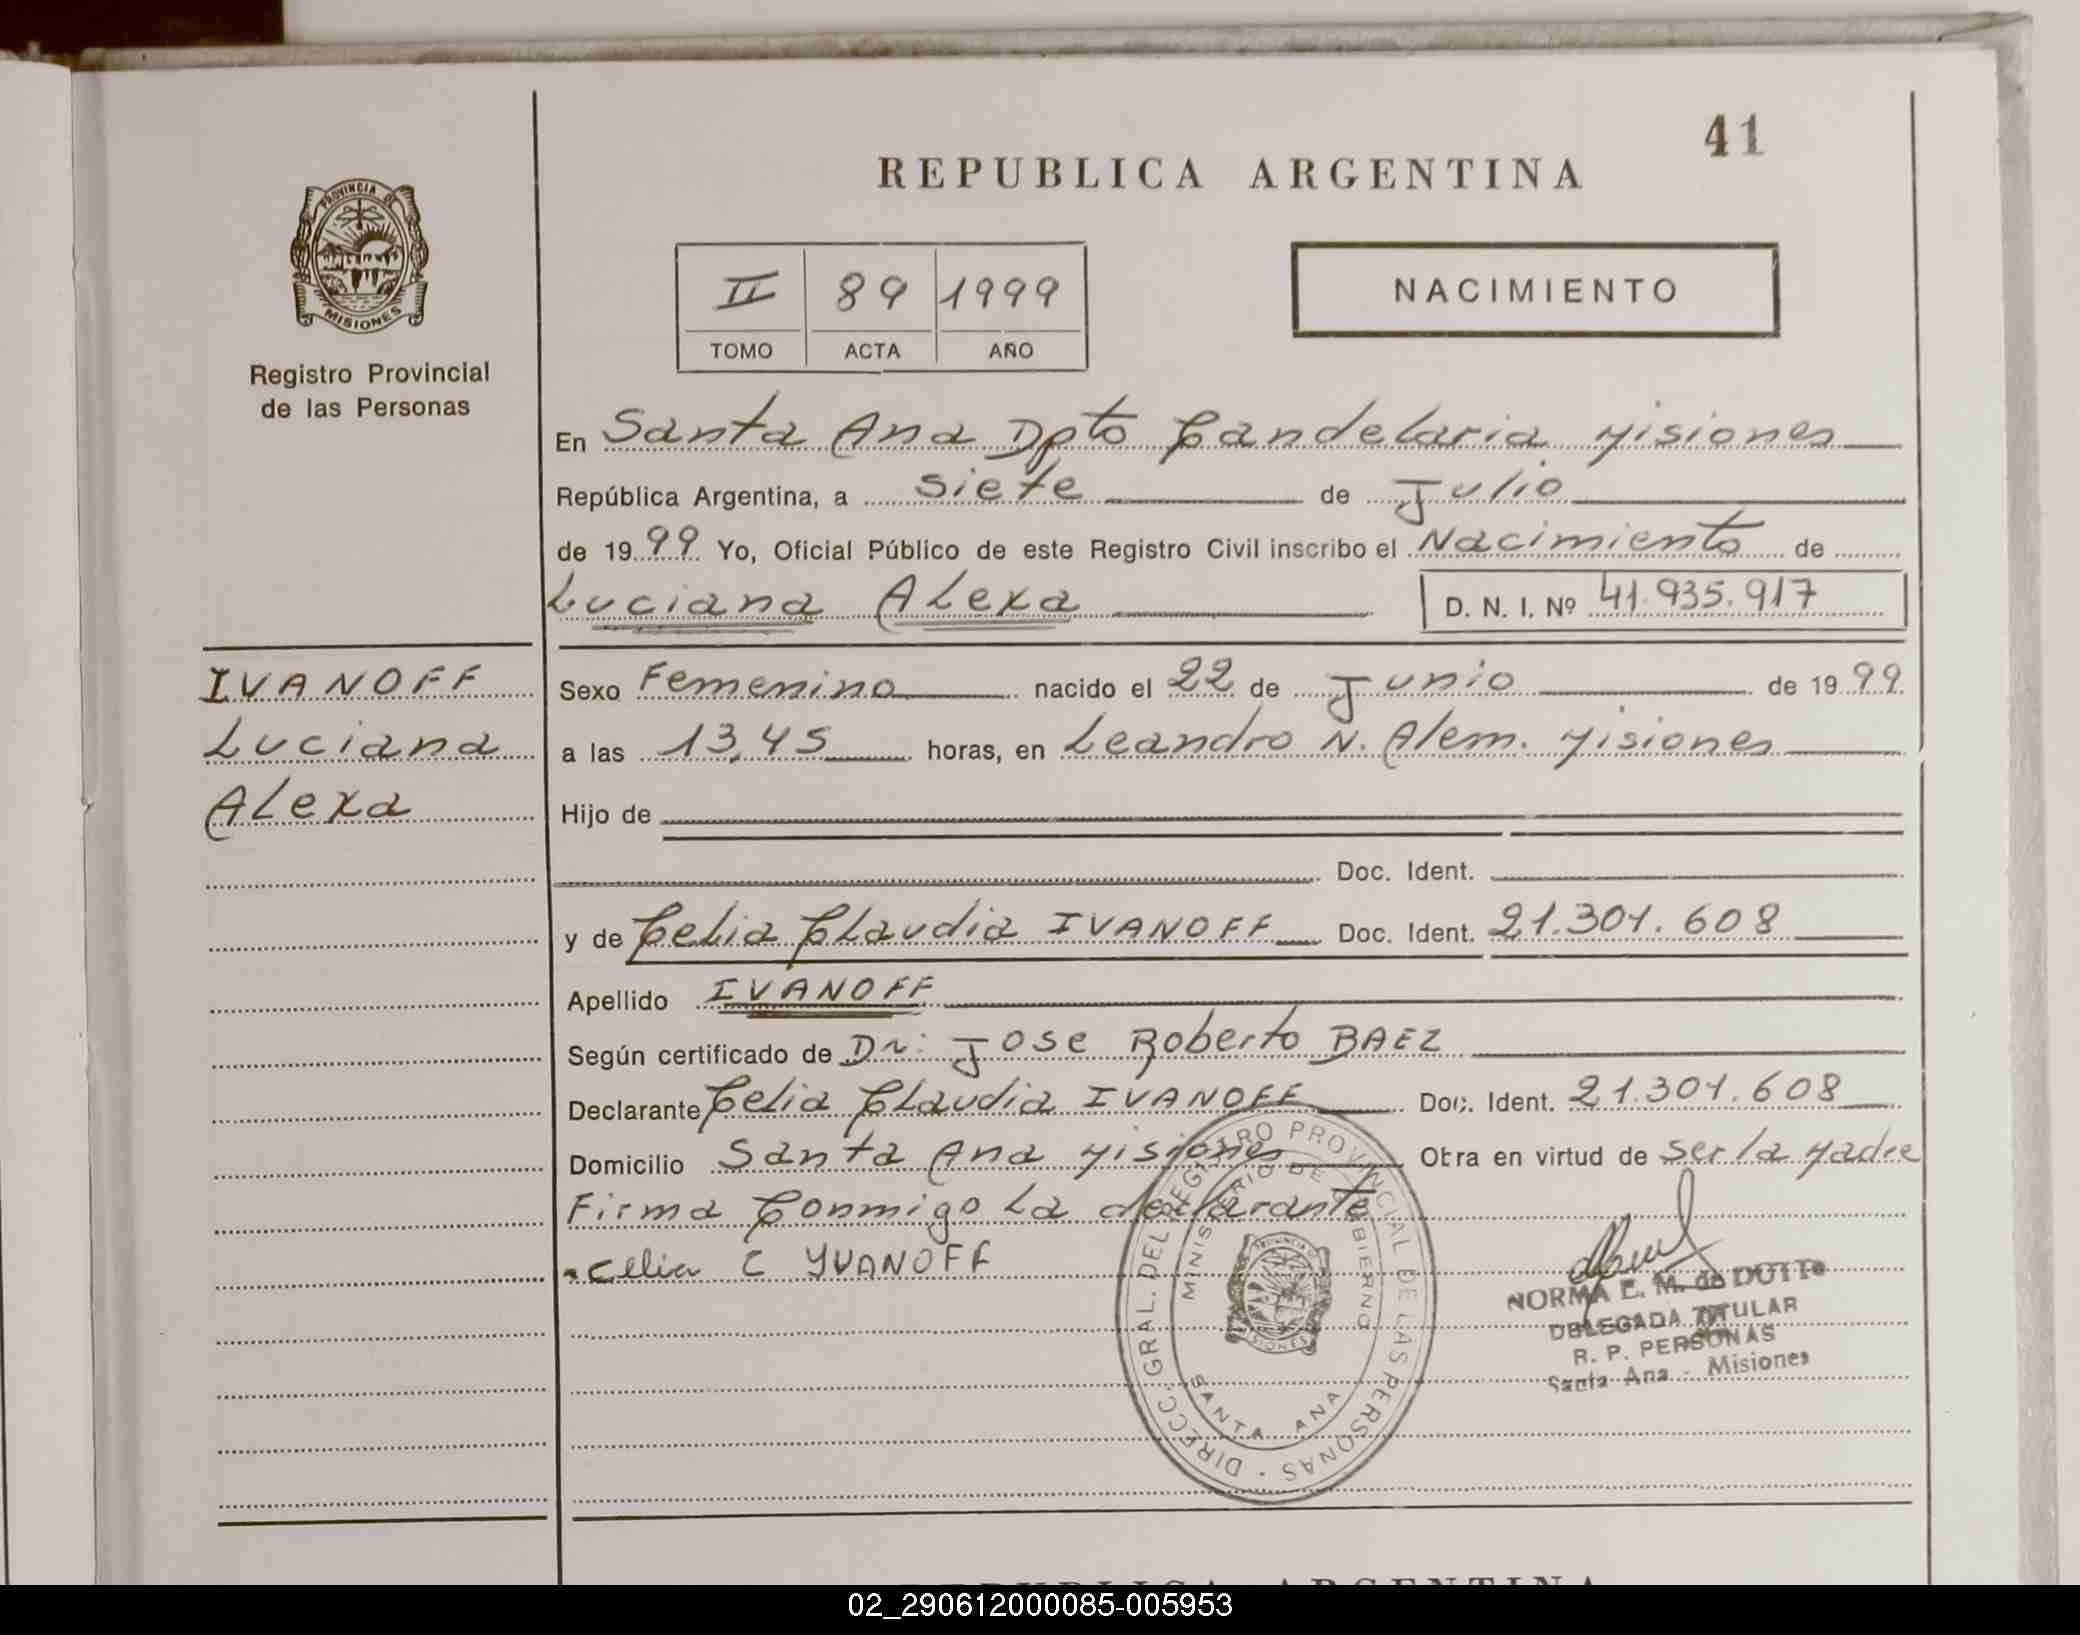 41
REPUBLICA ARGENTINA
PROVINCIA DE MISIONES
Registro Provincial
de las Personas
II 89 1999
TOMO ACTA AÑO
NACIMIENTO
En Santa Ana Dpto Candelaria Misiones
República Argentina, a siete de Julio
de 1999 Yo, Oficial Público de este Registro Civil inscribo el Nacimiento de
Luciana Alexa D. N. I. Nº 41.935.917
IVANOFF
Luciana
Alexa
Sexo Femenino nacido el 22 de Junio de 1999
a las 13,45 horas, en Leandro N. Alem. Misiones
Hijo de
Doc. Ident.
y de Celia Claudia IVANOFF Doc. Ident. 21.301.608
Apellido IVANOFF
Según certificado de Dr. Jose Roberto BAEZ
Declarante Celia Claudia IVANOFF Doc. Ident. 21.301.608
Domicilio Santa Ana Misiones Obra en virtud de ser la Madre
Firma Conmigo la declarante
Celia C YVANOFF
DIRECC. GRAL. DEL REGISTRO PROVINCIAL DE LAS PERSONAS
MINISTERIO DE GOBIERNO
SANTA ANA
NORMA E. M. de DUTTO
DELEGADA TITULAR
R. P. PERSONAS
Santa Ana - Misiones
REPUBLICA ARGENTINA
02_290612000085-005953